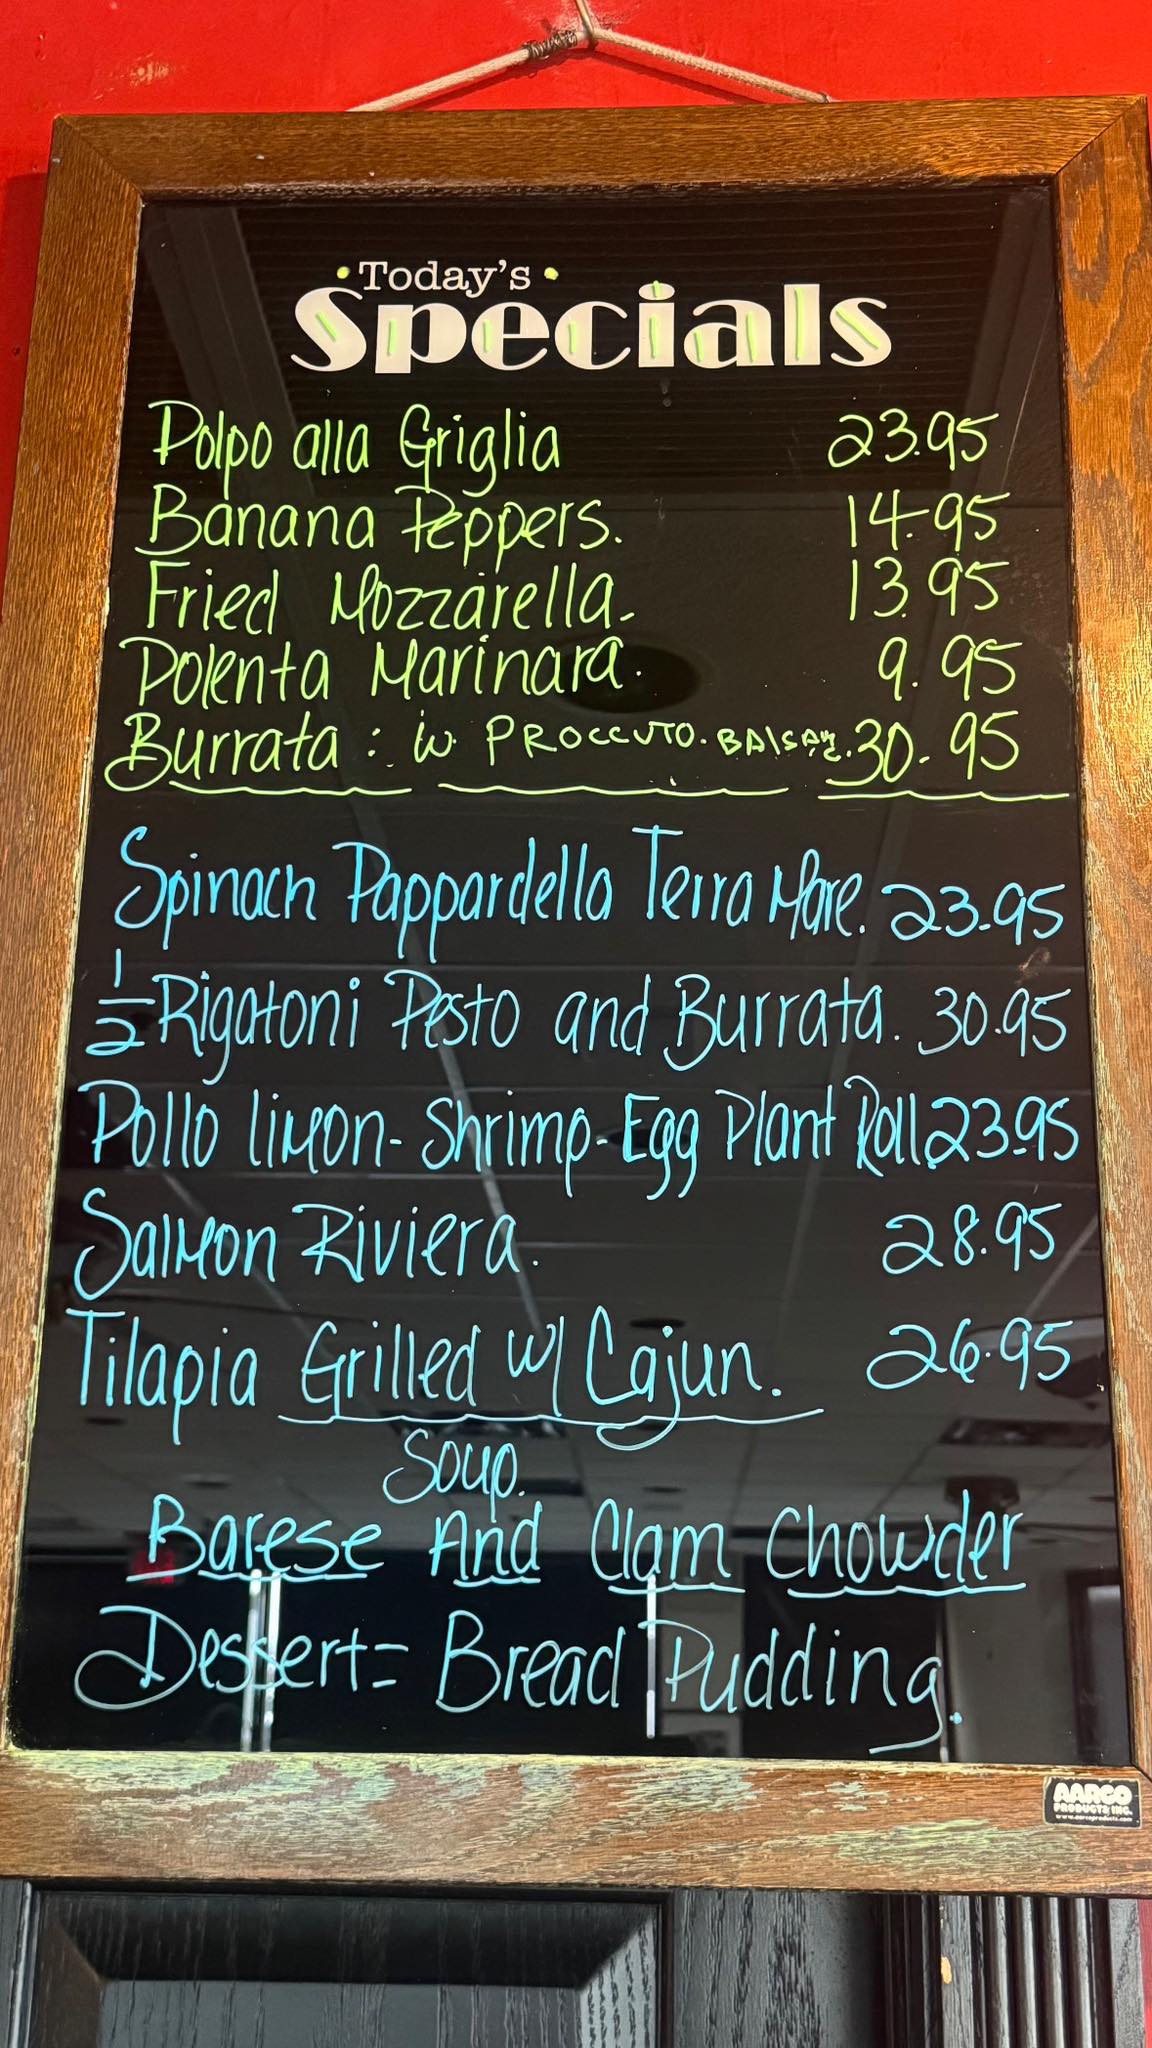 Today's
Specials
Polpo alla Griglia 23.95
Banana Peppers. 14.95
Fried Mozzarella. 13.95
Polenta Marinara. 9.95
Burrata: w. PROCCUTO. 30.95
Spinach Pappardella Terra Mare. 23.95
1/2 Rigatoni Pesto and Burrata. 30.95
Pollo limon- Shrimp- Egg Plant Roll. 23.95
Salmon Riviera. 28.95
Tilapia Grilled w/ Cajun. 26.95
Soup.
Barese And Clam Chowder
Dessert= Bread Pudding.
AARCO
PRODUCTS INC.
www.aarcoproducts.com